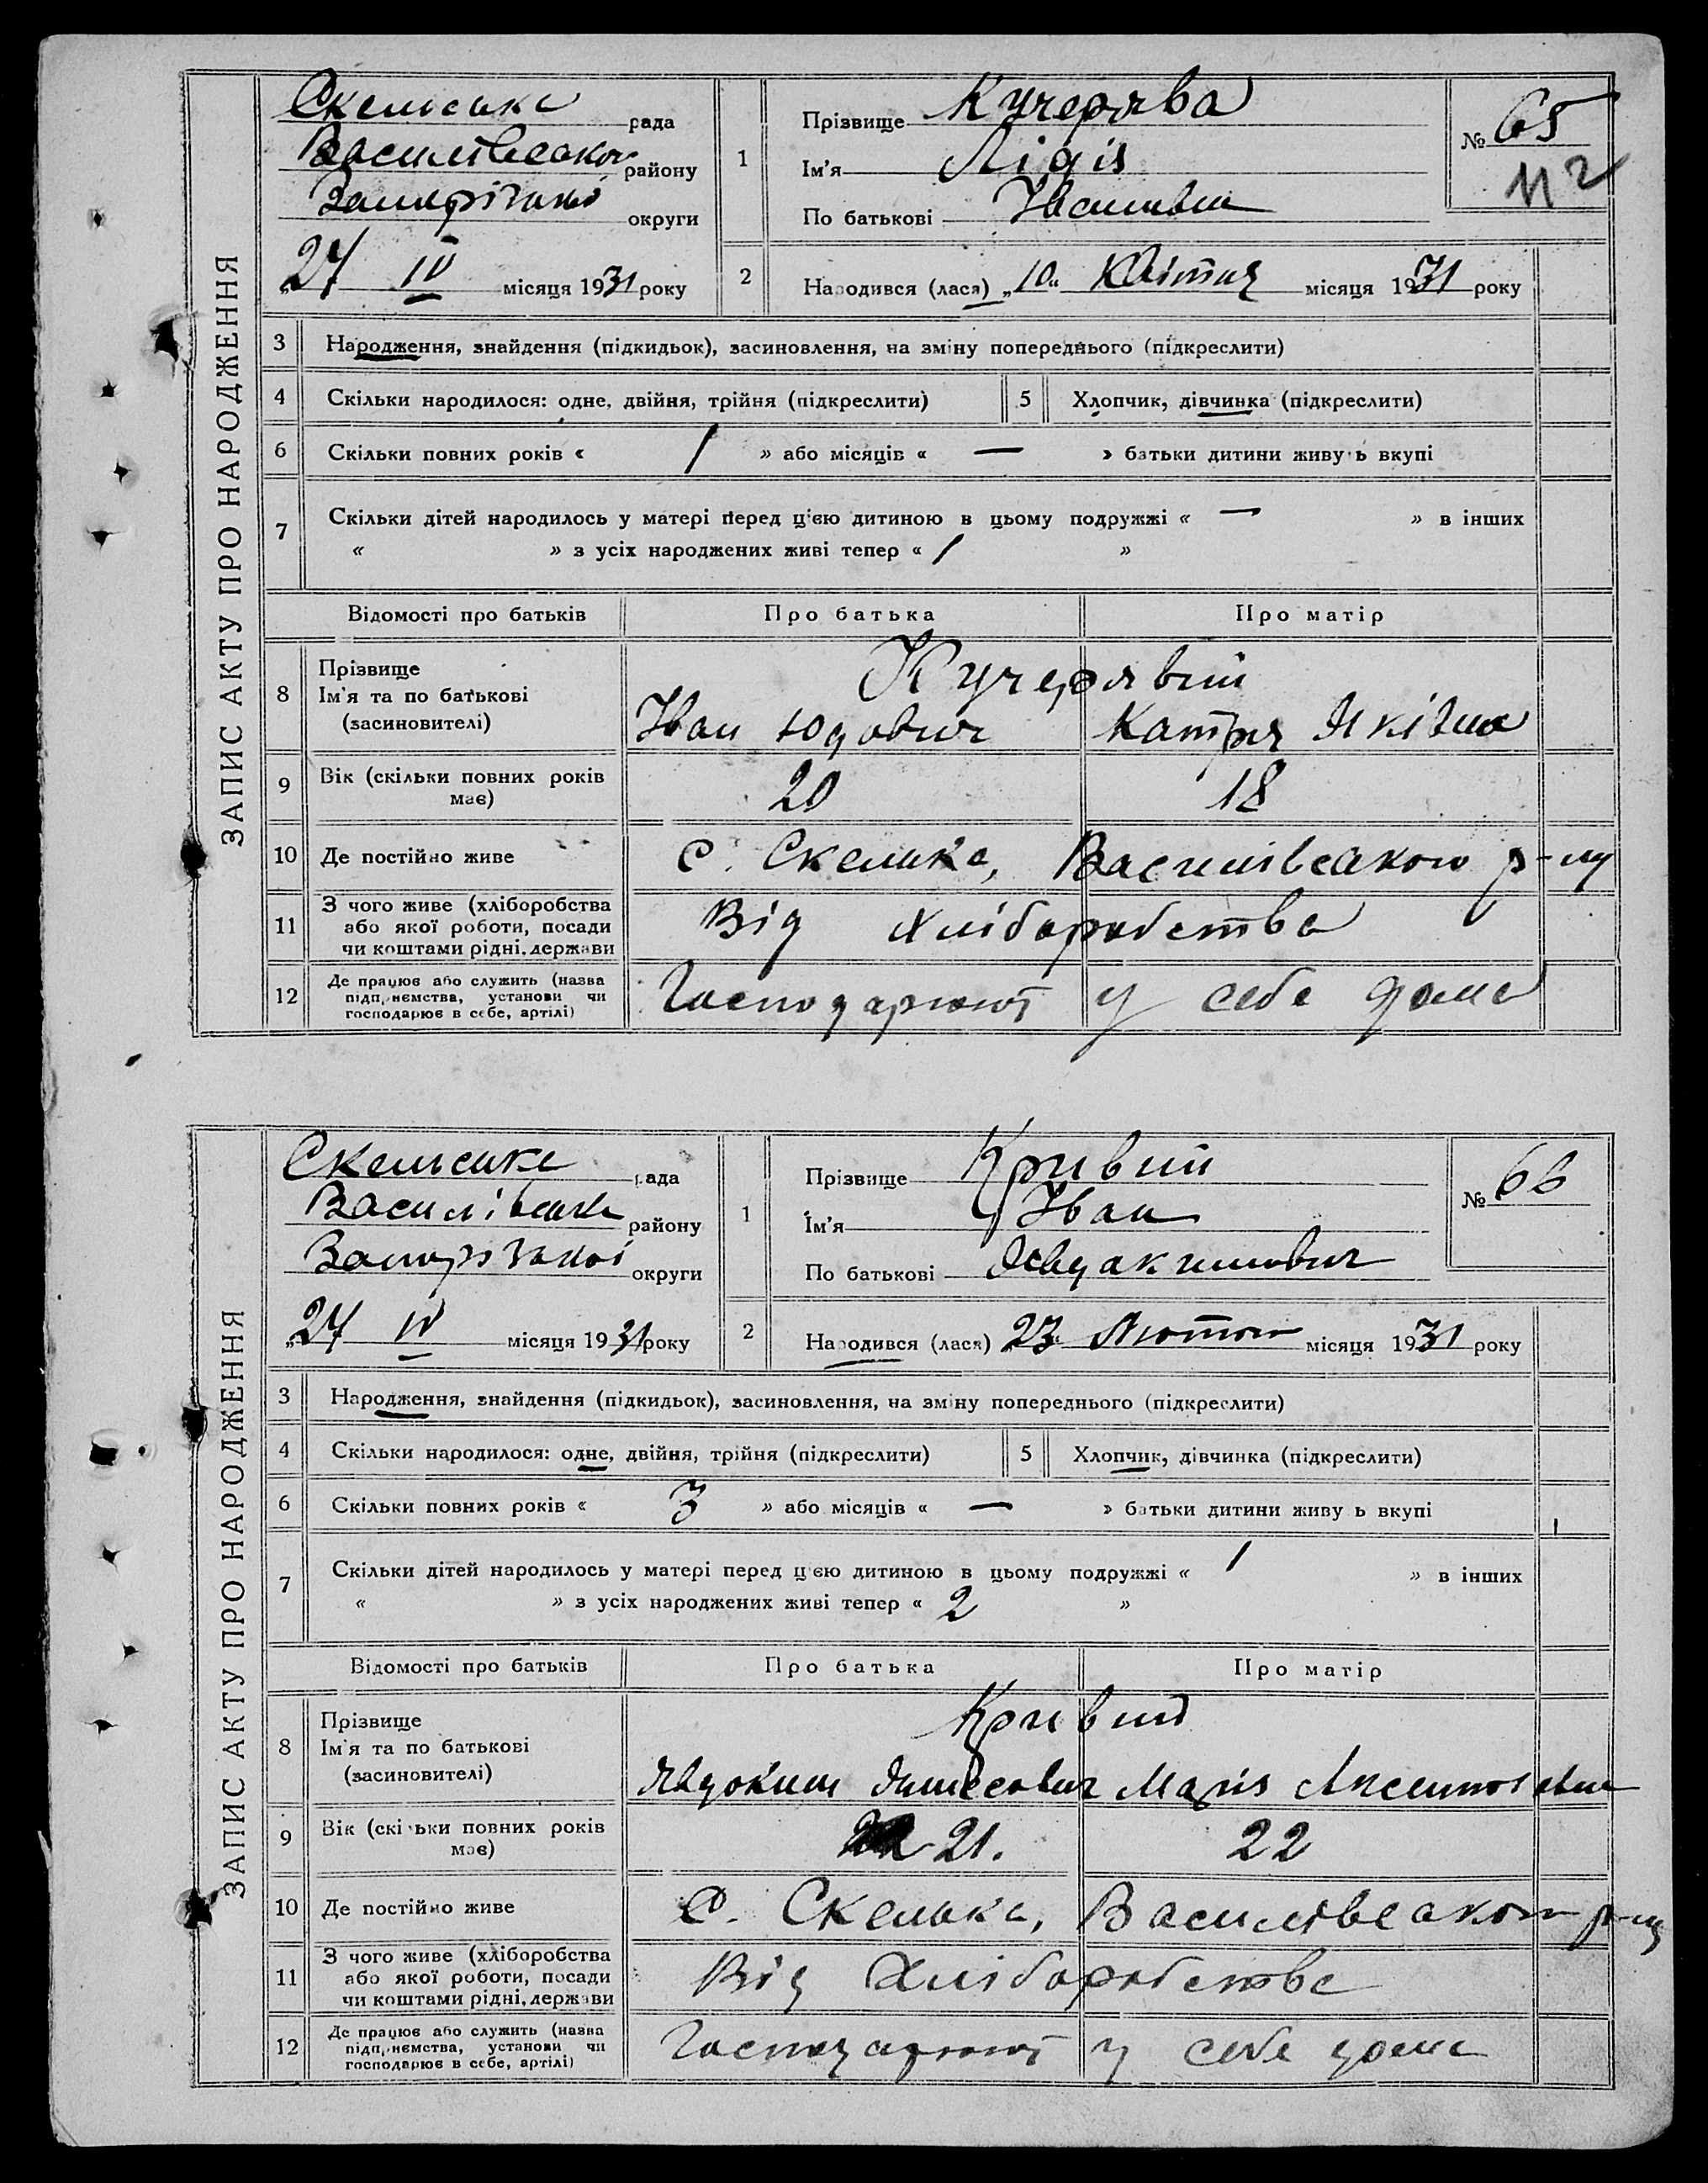 ЗАПИС АКТУ ПРО НАРОДЖЕННЯ
Скельська рада
Василівського району
Запорізької округи
27 IV місяця 1931 року
1 Прізвище Кучерява
Ім'я Лідія
По батькові Івановна
№ 65
112
2 Народився (лася) „10“ Квітня місяця 1931 року
3 Народження, знайдення (підкидьок), засиновлення, на зміну попереднього (підкреслити)
4 Скільки народилося: одне, двійня, трійня (підкреслити) 5 Хлопчик, дівчинка (підкреслити)
6 Скільки повних років « 1 » або місяців « — » батьки дитини живуть вкупі
7 Скільки дітей народилось у матері перед цією дитиною в цьому подружжі « — » в інших
« » з усіх народжених живі тепер « 1 »
Відомості про батьків Про батька Про матір
8 Прізвище
Ім'я та по батькові
(засиновителі)
Кучерявий
Іван Юдович Катря Яківна
9 Вік (скільки повних років
має) 20 18
10 Де постійно живе с. Скелька, Василівського р-ну
11 З чого живе (хліборобства
або якої роботи, посади
чи коштами рідні, держави
Від хліборобства
12 Де працює або служить (назва
підприємства, установи чи
господарює в себе, артілі)
Господарюют у себе дома
ЗАПИС АКТУ ПРО НАРОДЖЕННЯ
Скельська рада
Василівськ району
Запорізької округи
„27 IV місяця 1931 року
1 Прізвище Кривий
Ім'я Іван
По батькові Явдакимович
№ 66
2 Народився (лася) „23“ Лютого місяця 1931 року
3 Народження, знайдення (підкидьок), засиновлення, на зміну попереднього (підкреслити)
4 Скільки народилося: одне, двійня, трійня (підкреслити) 5 Хлопчик, дівчинка (підкреслити)
6 Скільки повних років « 3 » або місяців « — » батьки дитини живуть вкупі
7 Скільки дітей народилось у матері перед цією дитиною в цьому подружжі « 1 » в інших
« » з усіх народжених живі тепер « 2 »
Відомості про батьків Про батька Про матір
8 Прізвище
Ім'я та по батькові
(засиновителі)
Кривий
Явдоким Марія
9 Вік (скільки повних років
має) 21. 22
10 Де постійно живе с. Скелька, Василівського р-ну
11 З чого живе (хліборобства
або якої роботи, посади
чи коштами рідні, держави
Від Хліборобства
12 Де працює або служить (назва
підприємства, установи чи
господарює в себе, артілі)
Господарюют у себе дома